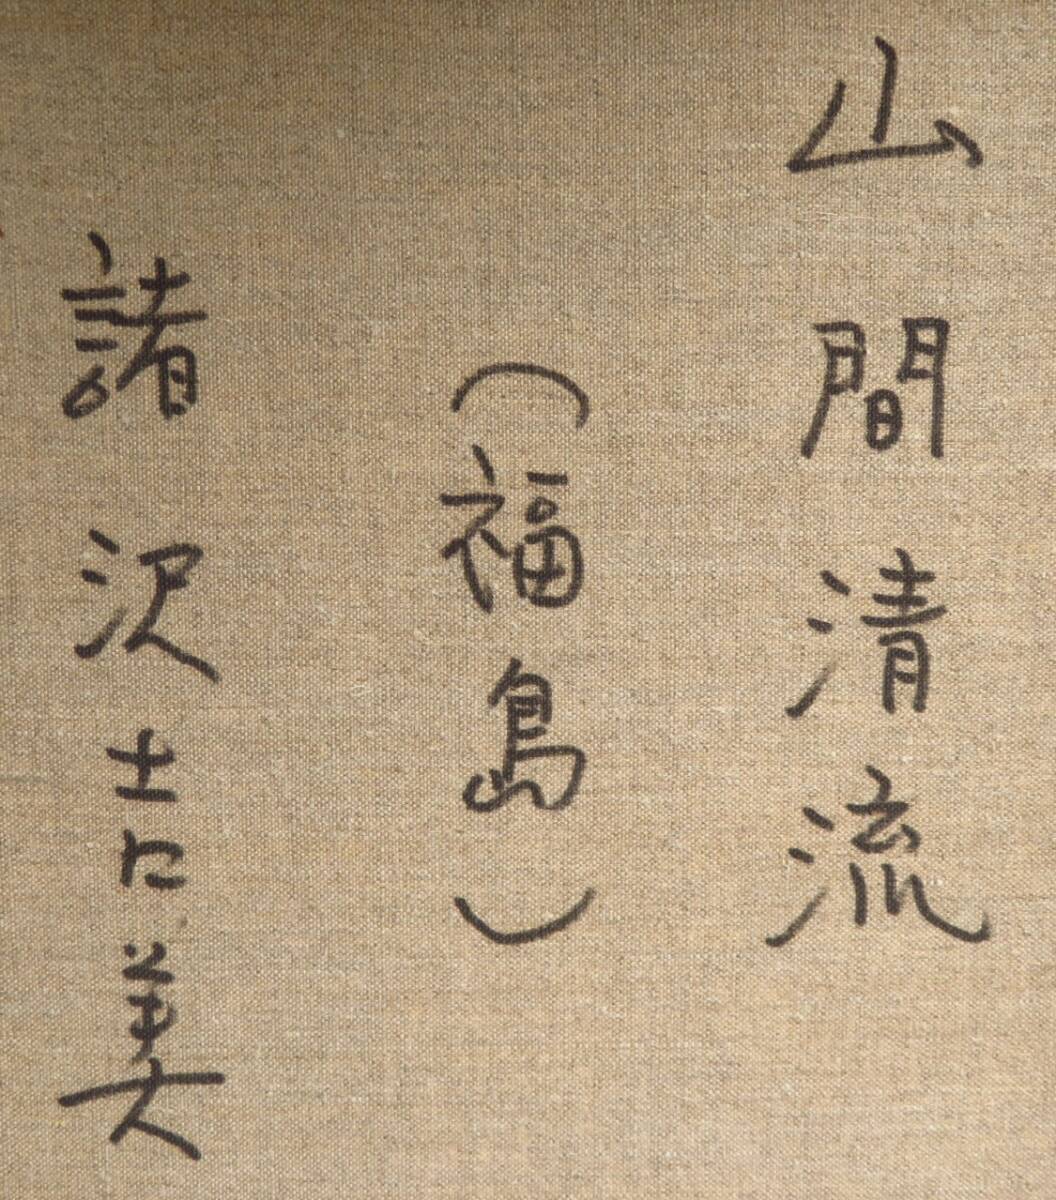 山間清流
（福島）
諸沢吉美